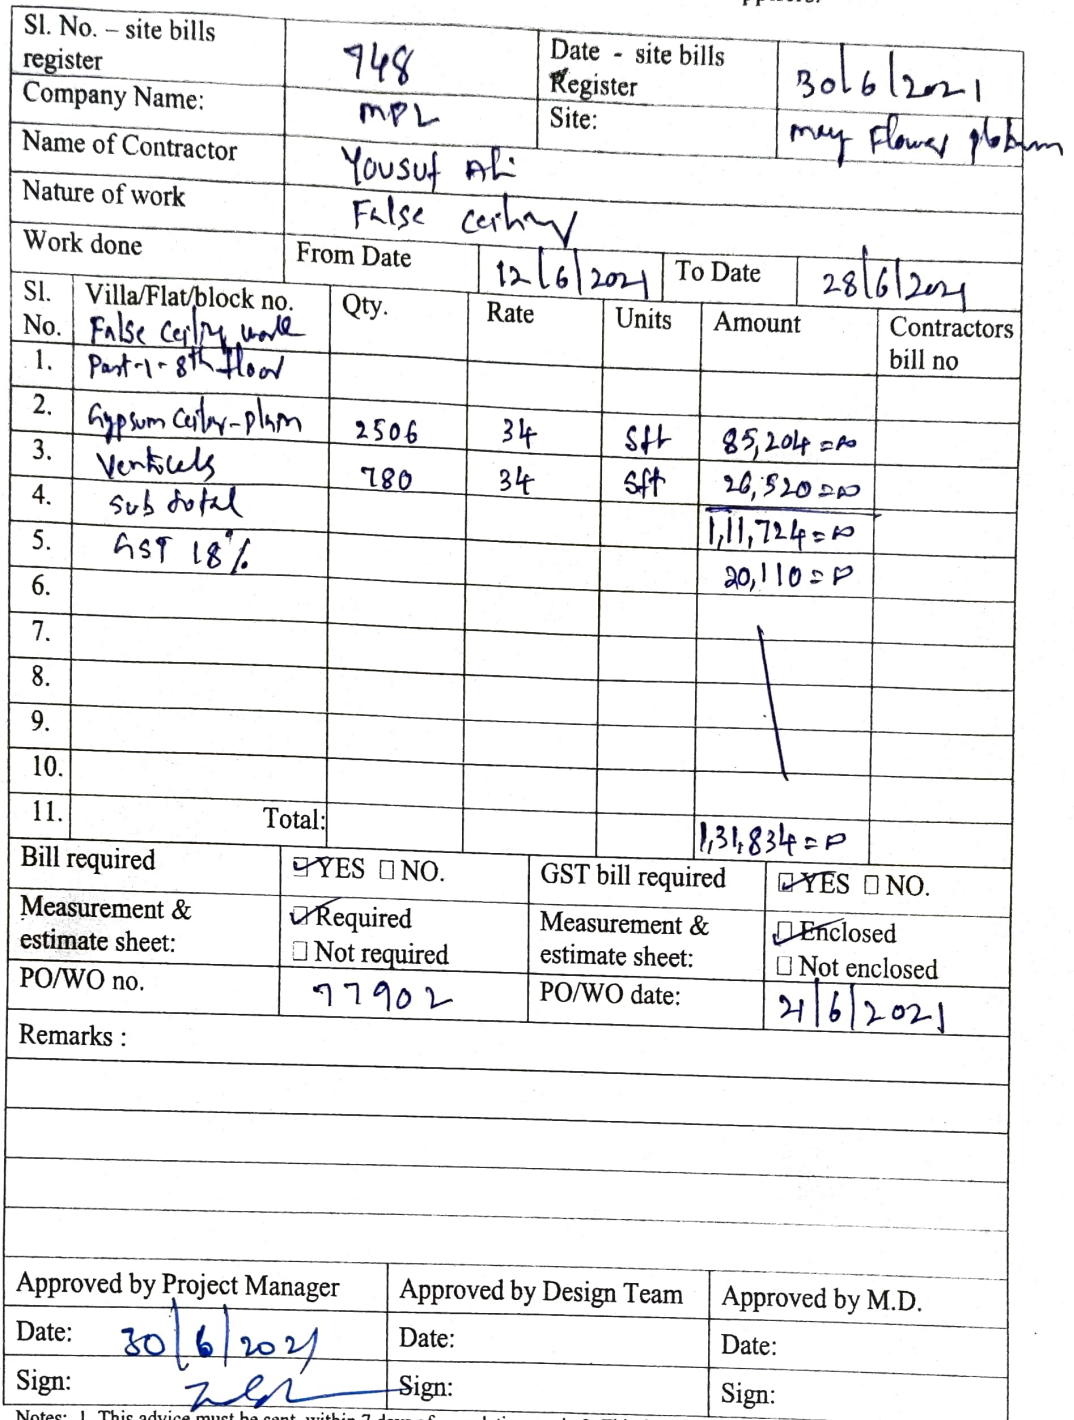 Sl. No. – site bills register 948 Date - site bills Register 30/6/2021
Company Name: MPL Site: may Flower platinum
Name of Contractor Yousuf Ali
Nature of work False ceiling
Work done From Date 12/6/2021 To Date 28/6/2021
Sl. No. Villa/Flat/block no. Qty. Rate Units Amount Contractors bill no
False ceiling work
1. Part-1-8th floor
2. Gypsum Ceiling-plain 2506 34 Sft 85,204=00
3. Verticals 780 34 Sft 26,520=00
4. Sub total 1,11,724=00
5. GST 18% 20,110=00
6.
7.
8.
9.
10.
11. Total: 1,31,834=00
Bill required YES NO. GST bill required YES NO.
Measurement & estimate sheet: Required Not required Measurement & estimate sheet: Enclosed Not enclosed
PO/WO no. 77902 PO/WO date: 21/6/2021
Remarks :
Approved by Project Manager Approved by Design Team Approved by M.D.
Date: 30/6/2021 Date: Date:
Sign: Sign: Sign:
Notes: 1. This advice must be sent within 7 days of